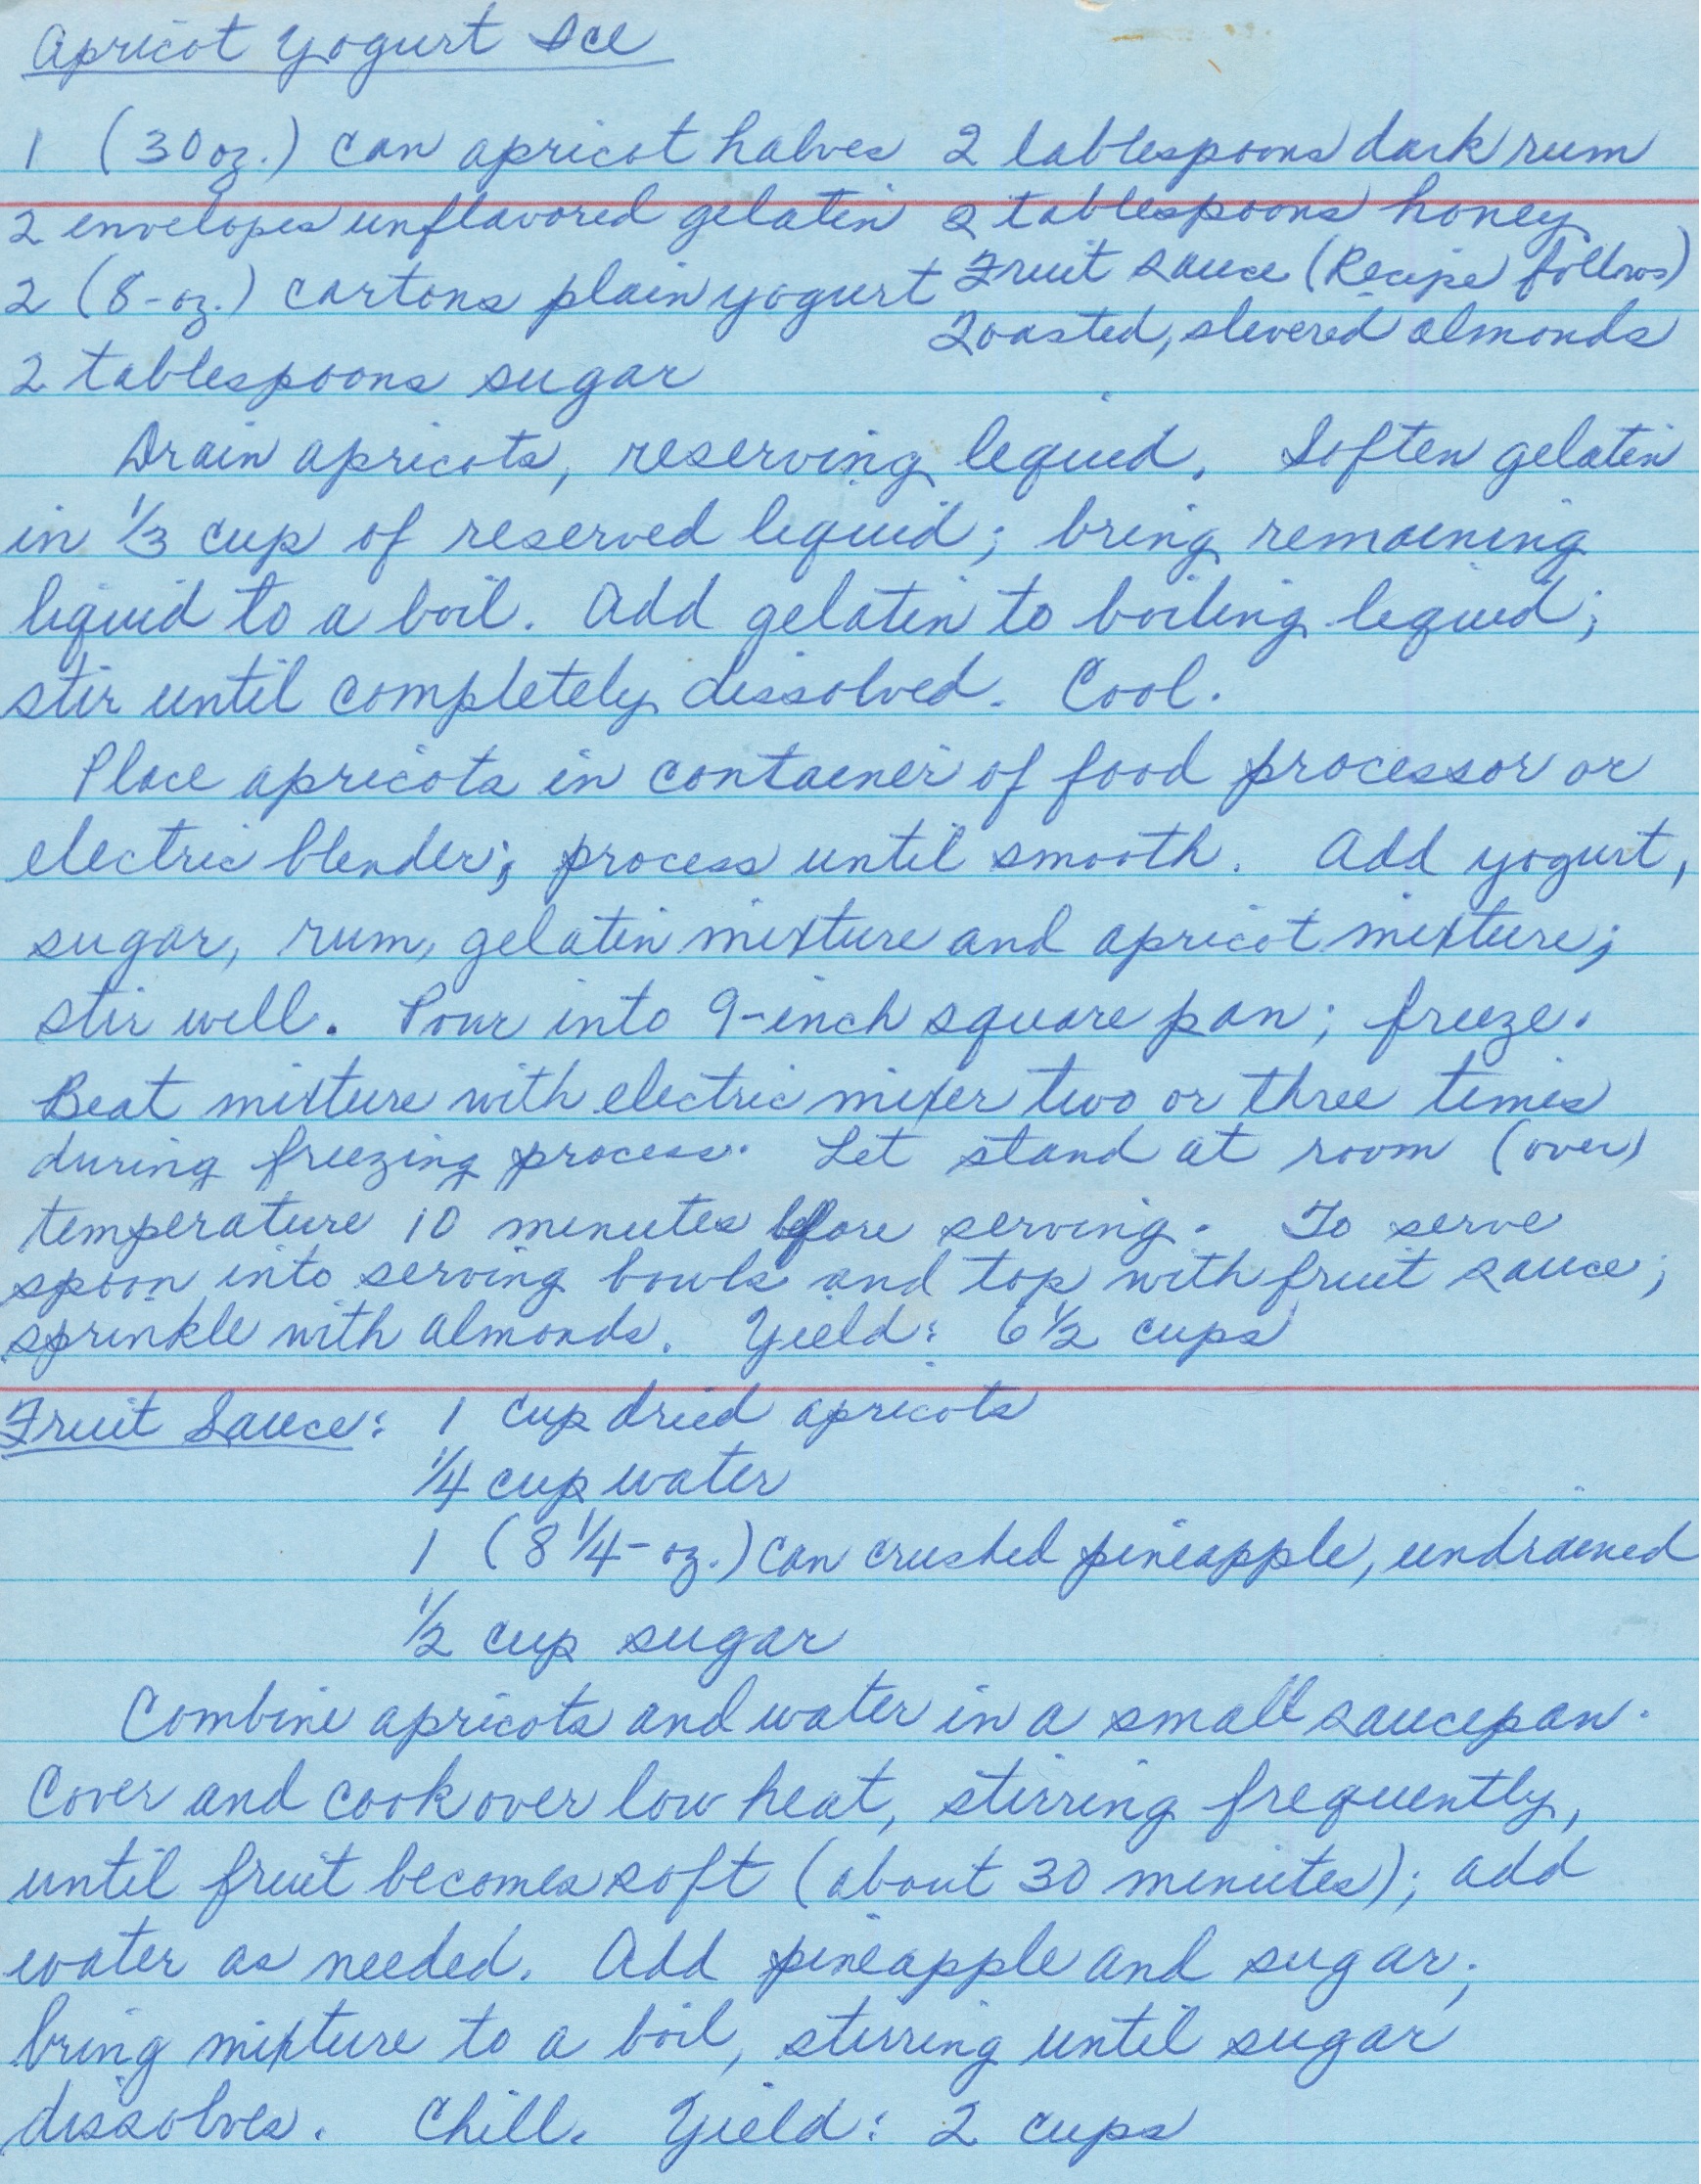 Apricot Yogurt Ice
1 (30 oz.) can apricot halves
2 envelopes unflavored gelatin
2 (8-oz.) cartons plain yogurt
2 tablespoons sugar
2 tablespoons dark rum
2 tablespoons honey
Fruit sauce (Recipe follows)
Toasted, slivered almonds
Drain apricots, reserving liquid. Soften gelatin
in 1/3 cup of reserved liquid; bring remaining
liquid to a boil. Add gelatin to boiling liquid;
stir until completely dissolved. Cool.
Place apricots in container of food processor or
electric blender; process until smooth. Add yogurt,
sugar, rum, gelatin mixture and apricot mixture;
stir well. Pour into 9-inch square pan; freeze.
Beat mixture with electric mixer two or three times
during freezing process. Let stand at room (over)
temperature 10 minutes before serving. To serve
spoon into serving bowls and top with fruit sauce;
sprinkle with almonds. Yield: 6 1/2 cups
Fruit Sauce: 1 cup dried apricots
1/4 cup water
1 (8 1/4-oz.) can crushed pineapple, undrained
1/2 cup sugar
Combine apricots and water in a small saucepan.
Cover and cook over low heat, stirring frequently,
until fruit becomes soft (about 30 minutes); add
water as needed. Add pineapple and sugar;
bring mixture to a boil, stirring until sugar
dissolves. Chill. Yield: 2 cups